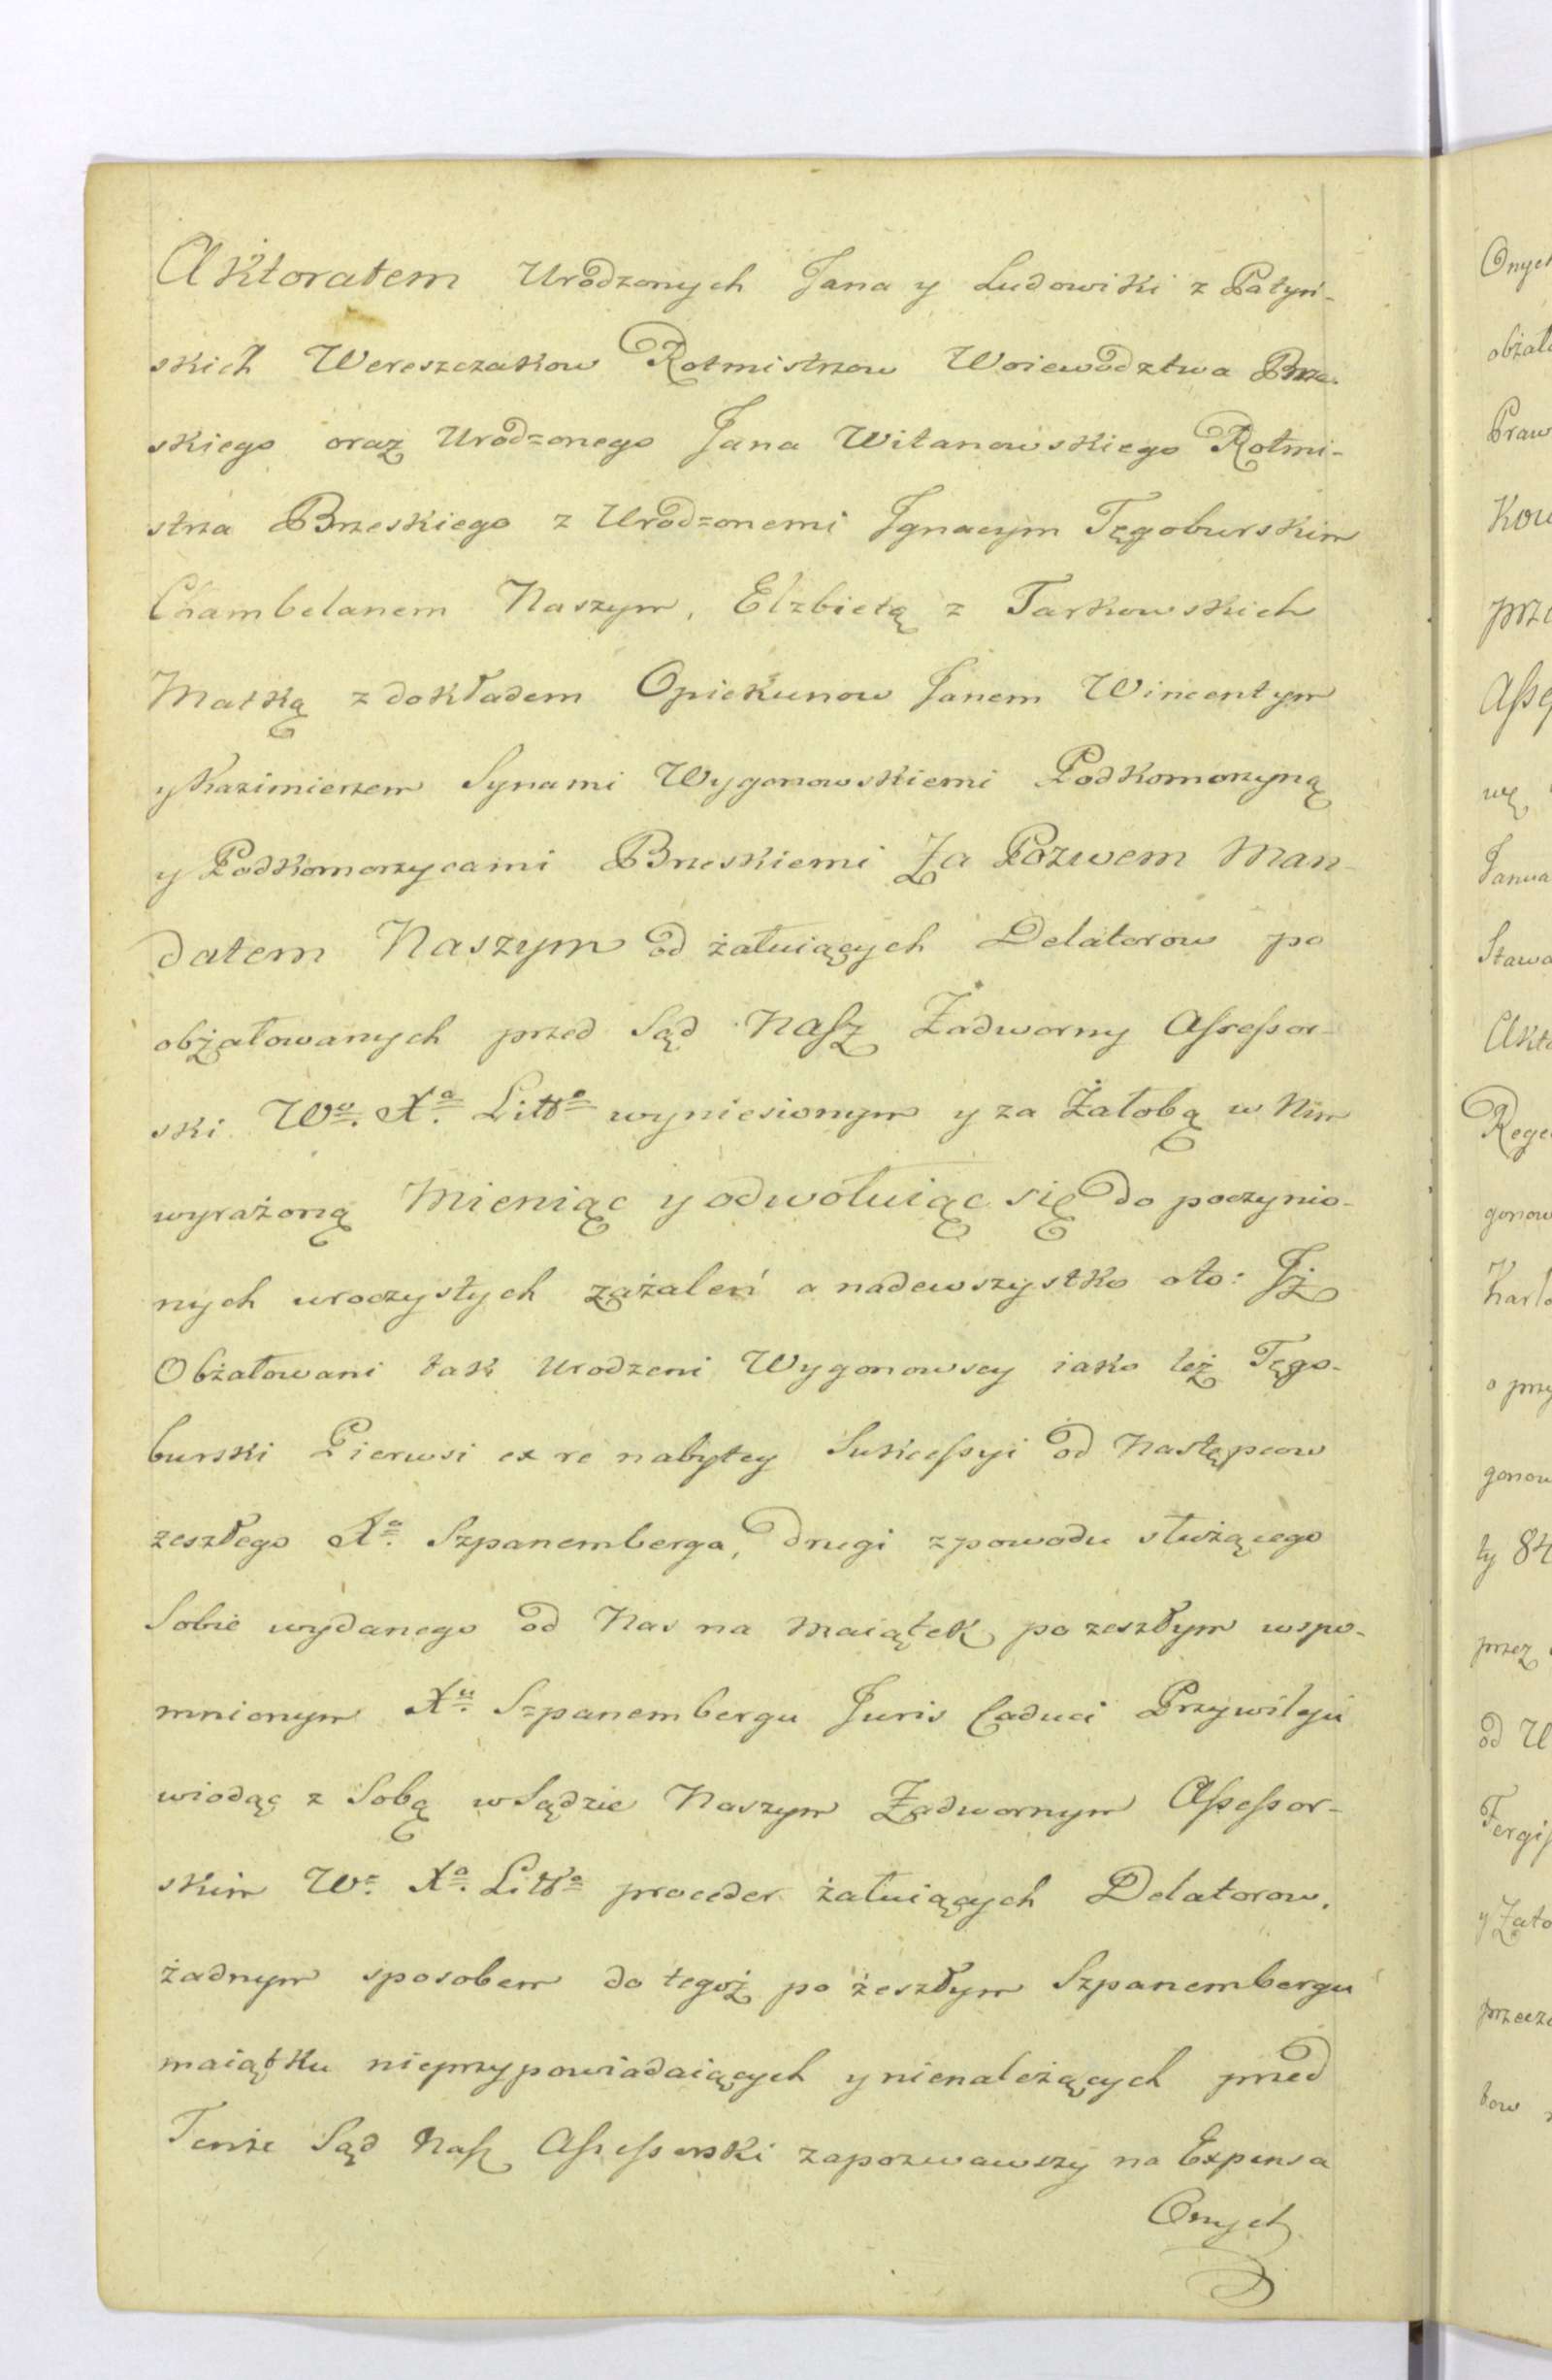 Aktoratem Urodzonych Jana y Ludowiki z Patyń-
skich Wereszczakow Rotmistrzow Woiewodztwa Brze-
skiego oraz Urodzonego Jana Witanowskiego Rotmi-
strza Brzeskiego z Urodzonemi Jgnacym Tęgoburskim
Chambelanem Naszym, Elzbietą z Tarkowskich
Matką z dokładem Opiekunow Janem Wincentym
y Kazimierzem Synami Wygonowskiemi Podkomorzyną
y Podkomorzycami Brzeskiemi Za Pozwem Man-
datem Naszym od żałuiących Delatorow po
obżałowanych przed Sąd Nasz Zadworny Assessor-
ski Wo. Xa. Litto wyniesionym y za Żałobą w Nim
wyrażoną Mieniąc y odwołuiąc się do poczynio-
nych uroczystych zażaleń a nadewszystko oto: Jż
Obżałowani tak Urodzeni Wygonowscy iako też Tęgo-
burski Pierwsi ex re nabytey Sukcessyi od Następcow
zeszłego Xa. Szpanemberga, drugi z powodu służącego
Sobie wydanego od Nas na Maiątek po zeszłym wspo-
mnionym Xu. Szpanembergu Juris Caduci Przywileju
wiodąc z Sobą w Sądzie Naszym Zadwornym Assessor-
skim Wo. Xa. Litto proceder żałuiących Delatorow,
żadnym sposobem do tegoż po zeszłym Szpanembergu
maiątku nieprzypowiadaiących y nienależących przed
Tenże Sąd Nasz Assessorski zapozwawszy na Expensa
Onych

Onych
obżało
Praw
Kow
prze
Asse
wę
Janua
Stawa
Akto
Rege
gonow
Karlo
o przy
gonow
ty 84
przez
od U
Tergis
y Zało
przecz
tow